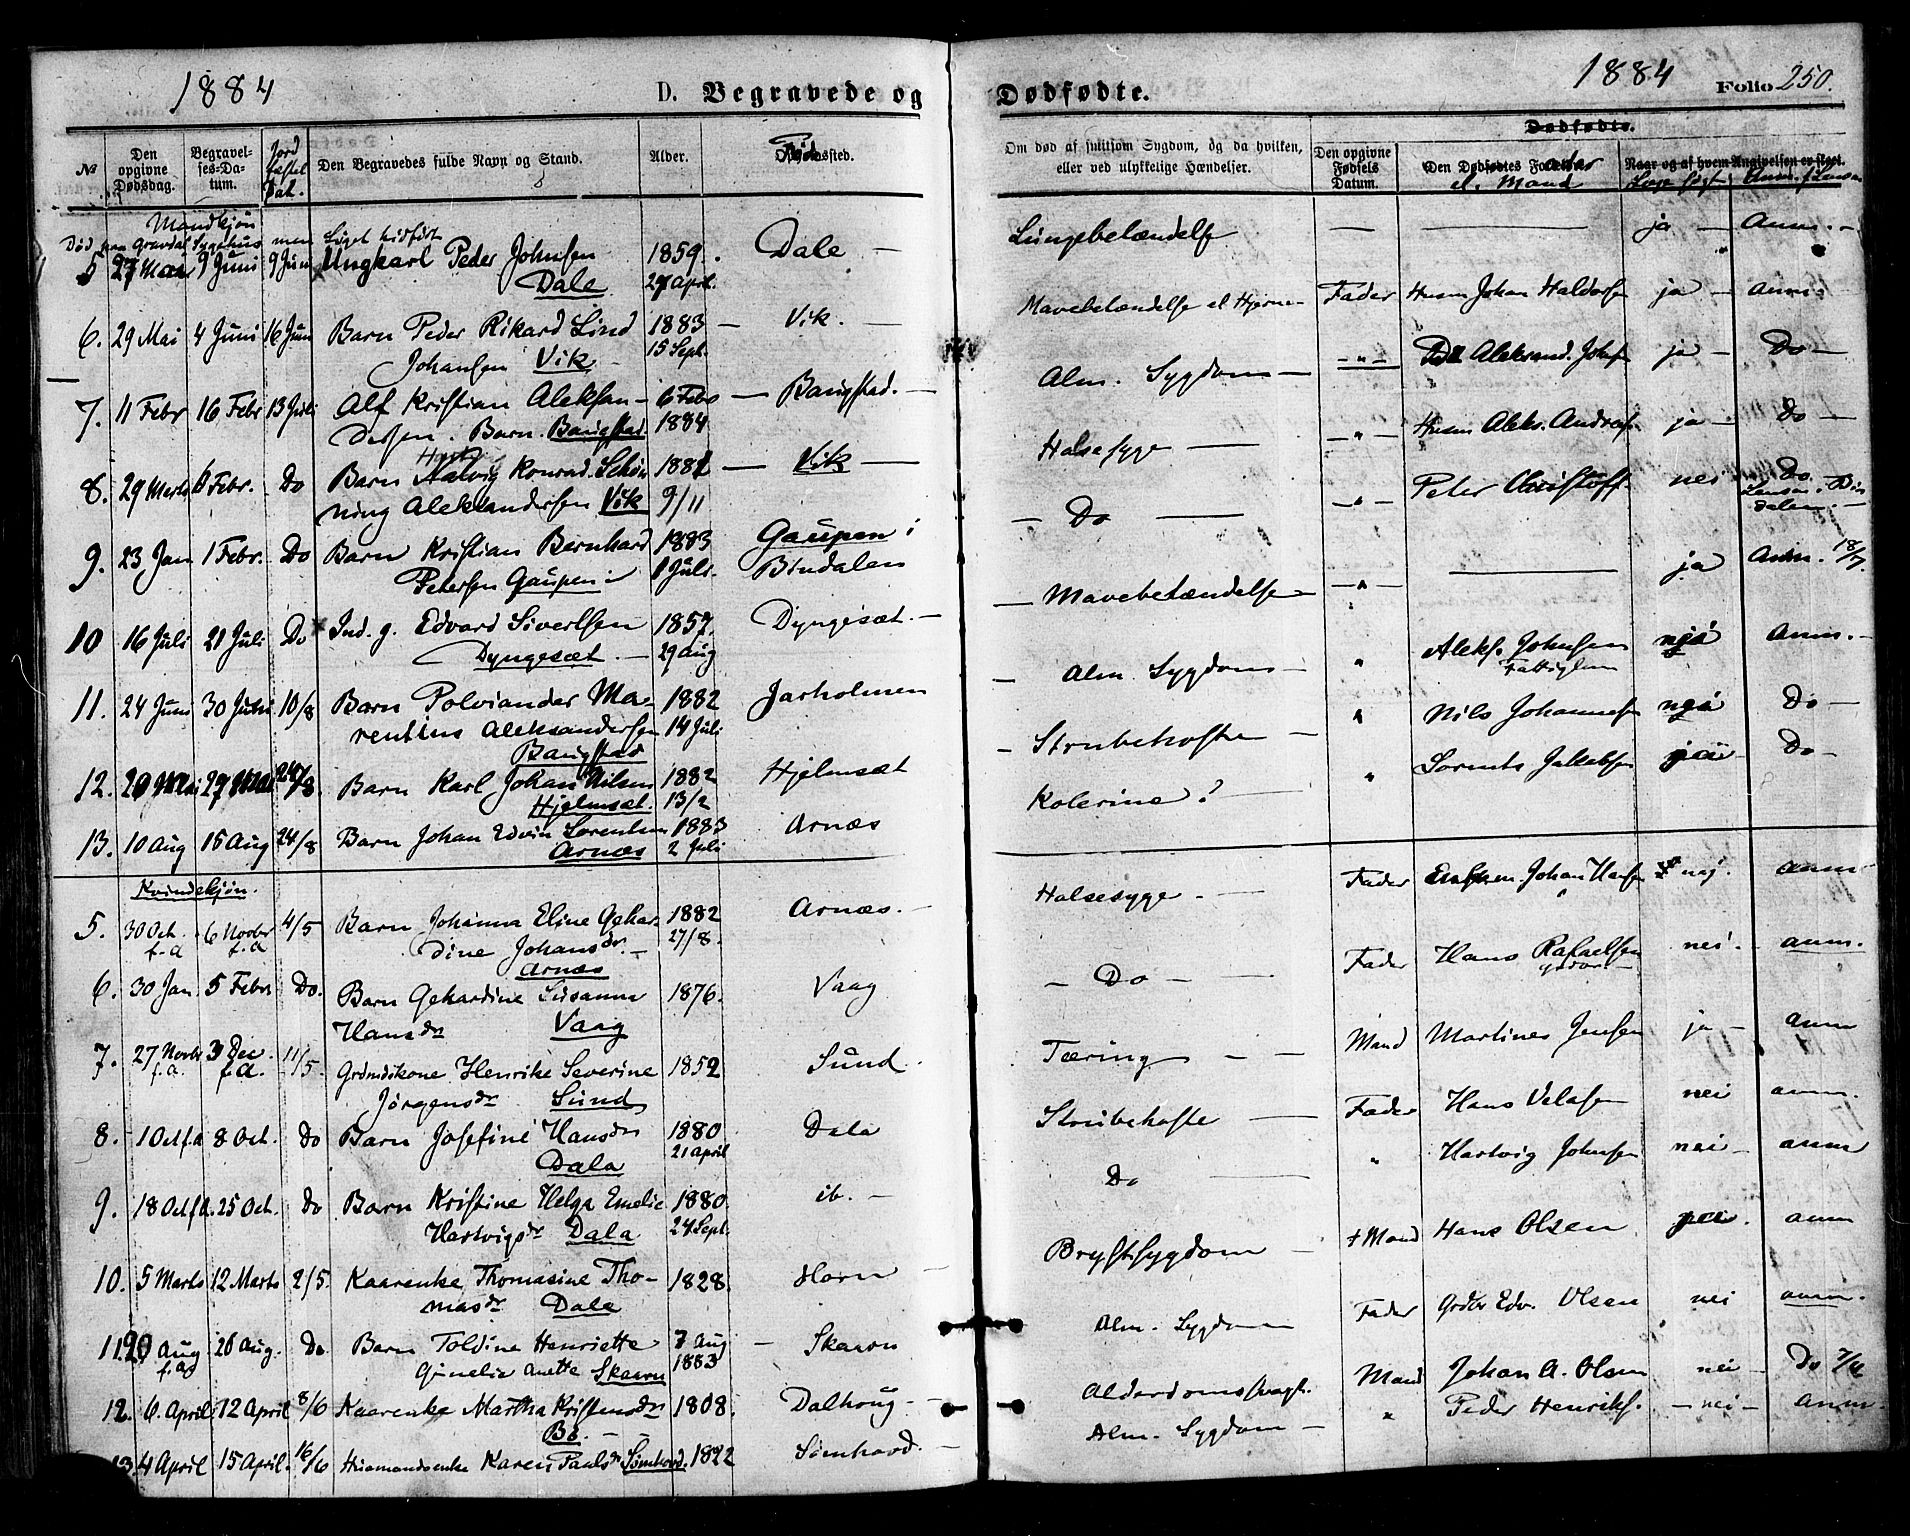 1884 D. Begravede og
№ Den opgivne Dødsdag. Begravel-ses-Da-tum. Jord fæstel Dat. Den Begravedes fulde Navn og Stand. Alder.
Mandkjøn
Død paa Gravdal Sygehus men Liget hidført
5 27 Mai 9 Juni 9 Juni Ungkarl Peder Johnsen 1859. Dale —
Dale 27 April.
6. 29 Mai 4 Juni 16 Juni Barn Peder Rikard Lind 1883 — Vik. —
Johansen Vik — 15 Sept.
7. 11 Febr 16 Febr 13 Juli Alf Kristian Aleksan- 6 Febr — Baugstad. —
dersen. Barn. Baugstad 1884
8. 29 Marts Febr. Do Barn Konrad Schøn — Vik —
ning Aleksandersen Vik 9/11
9. 23 Jan 1 Febr. Do Barn Kristian Bernhard 1883 Gaupen i
Petersen Gaupen — Juli. Bindalen
10 16 Juli 21 Juli Do Ind. g. Edvard Sivertsen 1857. Dyngesæt. —
Dyngesæt. — 29 Aug
11. 24 Juni 30 Juni 10/8 Barn Polviander Ma- 1882 Jarholmen
rentius Aleksandersen 14 Juli
Baugstad
12. Mai Mai 24/8 Barn Karl Johan Nilsen 1882 Hjelmsæt
Hjelmsæt. 13/2
13. 10 Aug 15 Aug 24/8 Barn Johan Edvin Sorentsen 1883 Arnæs
Arnæs 2 Juli
Kvindekjøn.
5. 30 Oct. f.a 6 Novbr f.a 4/5 Barn Johanna Eline Gehar- 1882 Arnæs. —
dine Johansdr — 27/8.
Arnæs
6. 30 Jan. 5 Febr Do. Barn Gehardine Susanna 1876. Vaag
Hansdr Vaag
7. 27 Novbr f.a. 3 Dec. f.a. 11/5 Grdmdskone Henrike Severine 1852 Sund
Jørgensdr Sund
8. 1 Oct f.a 8 Oct. Do Barn Josefine Hansdr 1880 Dala
Dala 21 April
9. 18 Oct f.a. 25 Oct. Do Barn Kristine Helga Emelie 1880. ib. —
Hartvigsdr Dala 24 Sept.
10. 5 Marts 12 Marts 2/5. Kaarenke Thomasine Tho- 1828. Horn —
masdr Dale
11. 20 Aug f.a 26 Aug. Do Barn Toldine Henriette 7 Aug — Skaarn
Anette Skaarn 1883
12. 6 April 12 April 8/6 Kaarenke Martha Kristensdr 1808. Dalhoug —
Bø. —
13. 4 April 15 April. 16/6 Husmandsenke Karen Paulsdr Sømhovd. 1822 Sømhovd. —
Dødfødte. 1884 Folio 250.
Dødfødte.
Om død af smitsom Sygdom, og da hvilken, eller ved ulykkelige Hændelser. Den opgivne Fødsels Datum. Den Dødfødtes Forældre el. Mand Naar og af hvem Angivelsen er skeet.
Lungebetændelse — — ja — Anm. —
Mavebetændelse el Hjerne- Fader Husm Johan Haldorsen ja — Anm. —
Alm. Sygdom — — " — Aleksand. Johns ja — Do —
Halsesyge — — " — Husm Aleks. Andreas ja — Do —
— Do — — " — Peter Christoff. nei Do.
Lensm. i Bindalen. —
— Mavebetændelse — — " — ja Anm. 18/7.
— Alm. Sygdom — " Aleks. Johnsen Anm. —
— Strubehoste — " Nils Johannesen Do —
Kolerine? — " Sorents Jakobsen Do —
Halsesyge — Fader Johan Hansen nej. Anm —
— Do — — Fader Hans Rafaelsen nei — Anm.
Tæring — — Mand Martines Jensen ja — Anm
Strubehoste — Fader Hans Velasen nei Anm.
Do — " Hartvig Johnsen nei — Anm
Brystsygdom — † Mand Hans Olsen Anm
Alm. Sygdom Fader Grdbr Edv. Olsen nei Anm.
Alderdomssvagh. Mand Johan A. Olsen nei — Do
Alm. Sygdom — " Peder Henriks. — nei — Anm.